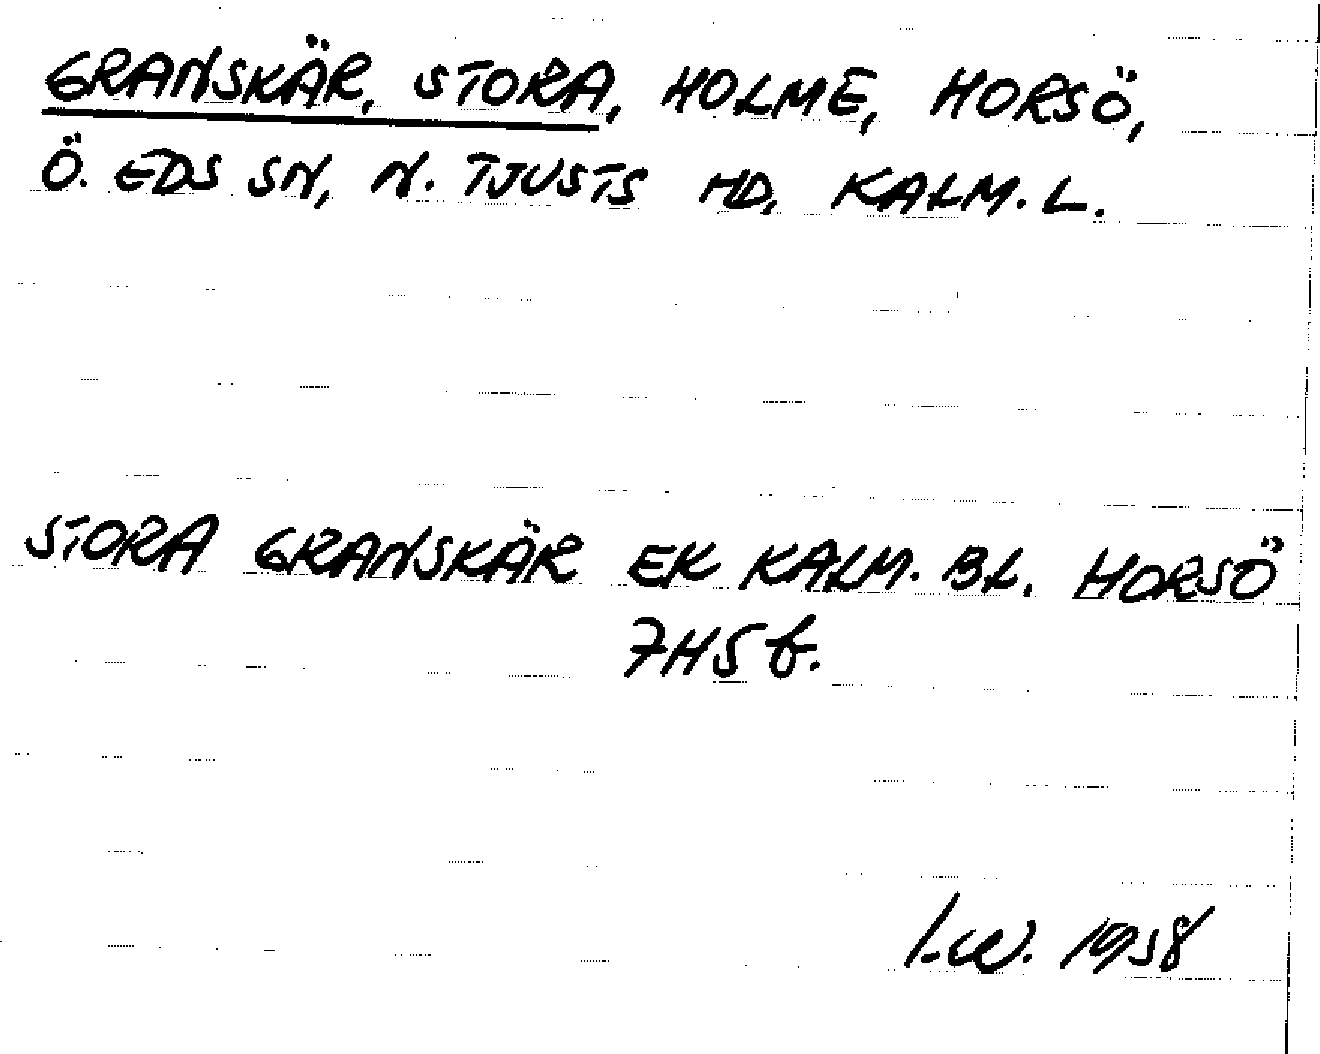 GRANSKÄR, STORA, HOLME, HORSÖ,
Ö. EDS SN, N. TJUSTS HD, KALM. L.
STORA GRANSKÄR EK KALM. BL. HORSÖ
7H5f.
I.W. 1958